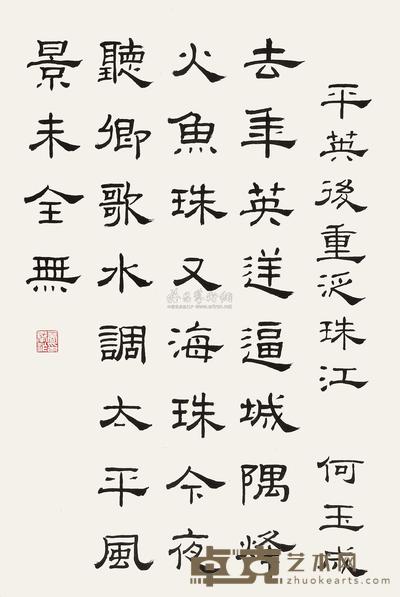 平英後重泛珠江 何玉成
去年英逆逼城隅烽
火魚珠又海珠今夜
聽卿歌水調太平風
景未全無
卓克艺术网
zhuokearts.com